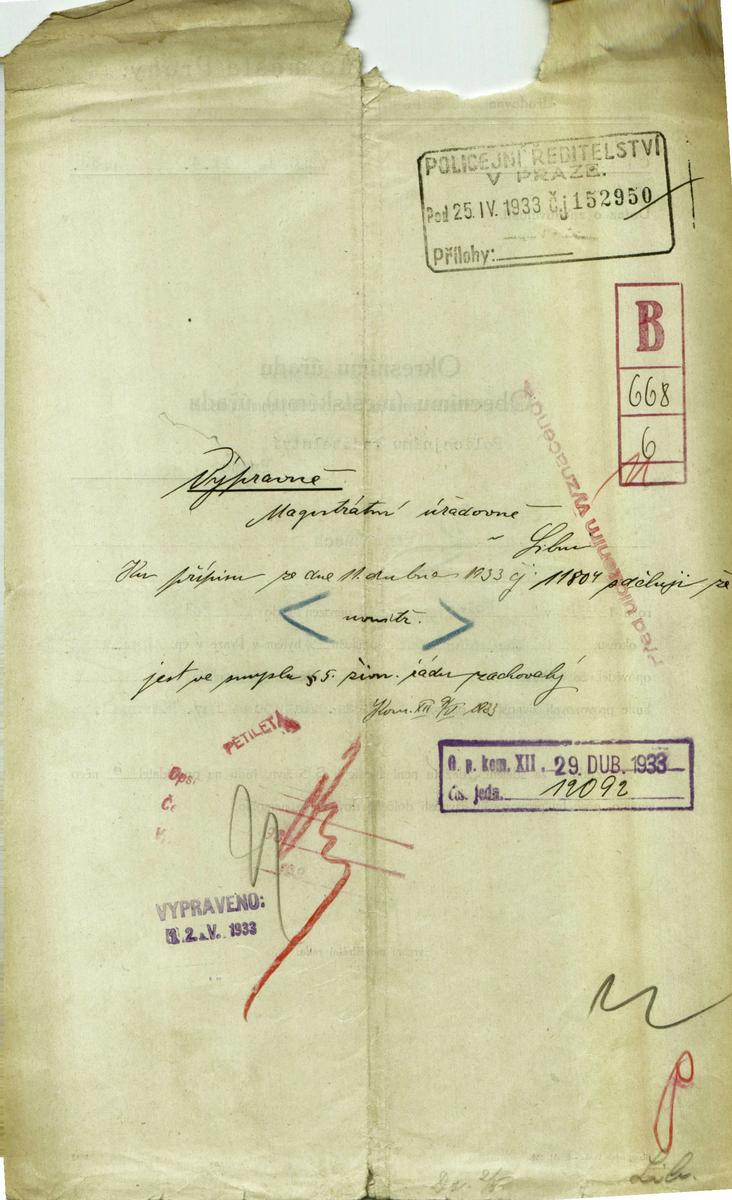 POLICEJNÍ ŘEDITELSTVÍ
V PRAZE.
Pod 25. IV. 1933 čj 152950
Přílohy:
B
668
6
Před uložením vyznačeno.
Výpravně
Magistrátní úřadovně
Libni
Ku přípisu ze dne 11. dubna 1933 čj 11804 sděluji že
uvnitř.
jest ve smyslu § 5. živn. řádu zachovalý
Kom. XII
1933
PĚTILETÁ
O. p. kom. XII. 29. DUB. 1933
čís. jedn. 12092
Opsi
VYPRAVENO:
2. V. 1933
Lib.